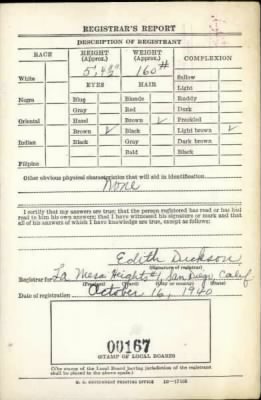 REGISTRAR'S REPORT
DESCRIPTION OF REGISTRANT
RACE HEIGHT (Approx.) WEIGHT (Approx.) COMPLEXION
White 5' 4 3/4" 160# Sallow
EYES HAIR Light
Negro Blue Blonde Ruddy
Gray Red Dark
Oriental Hazel Brown ✓ Freckled
Brown ✓ Black Light brown ✓
Indian Black Gray Dark brown
Bald Black
Filipino
Other obvious physical characteristics that will aid in identification
None
I certify that my answers are true; that the person registered has read or has had
read to him his own answers; that I have witnessed his signature or mark and that
all of his answers of which I have knowledge are true, except as follows:
Edith Dickson
(Signature of registrar)
Registrar for La Mesa Heights #1, San Diego, Calif
(Precinct) (Ward) (City or county) (State)
Date of registration October 16, 1940
00167
STAMP OF LOCAL BOARDS
(The stamp of the Local Board having jurisdiction of the registrant
shall be placed in the above space.)
U. S. GOVERNMENT PRINTING OFFICE